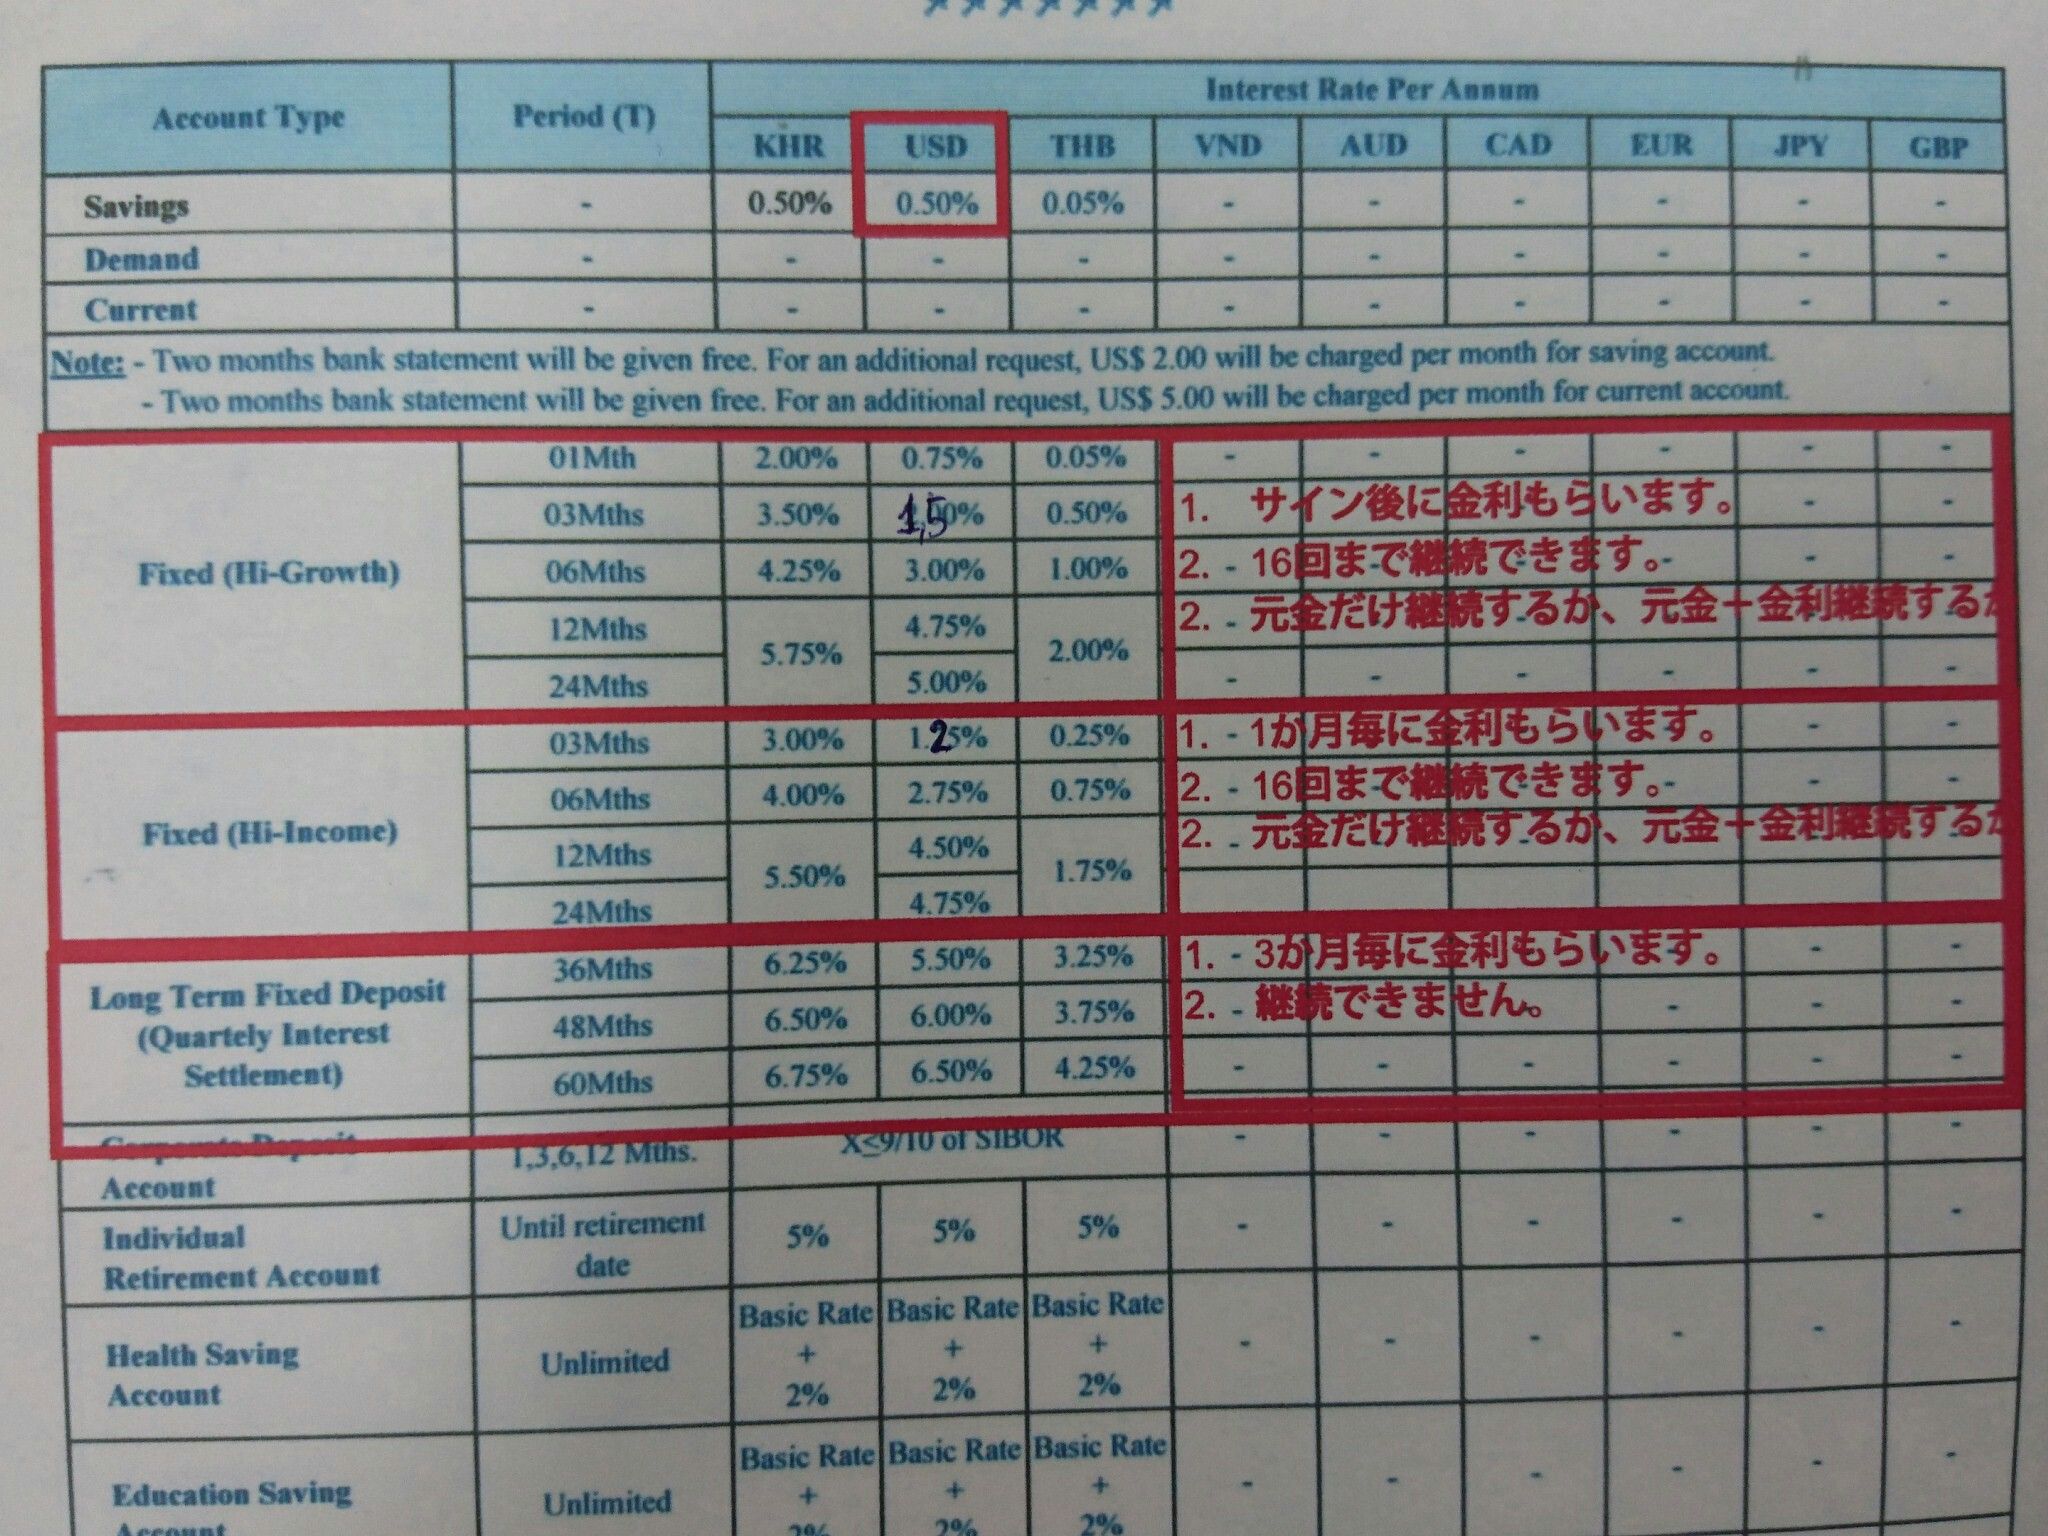 Account Type Period (T) Interest Rate Per Annum
KHR USD THB VND AUD CAD EUR JPY GBP
Savings - 0.50% 0.50% 0.05% - - - - - -
Demand - - - - - - - - - -
Current - - - - - - - - - -
Note: - Two months bank statement will be given free. For an additional request, US$ 2.00 will be charged per month for saving account.
- Two months bank statement will be given free. For an additional request, US$ 5.00 will be charged per month for current account.
Fixed (Hi-Growth)
01Mth 2.00% 0.75% 0.05% - - - - - -
03Mths 3.50% 1,5 0% 0.50% 1. サイン後に金利もらいます。 - -
06Mths 4.25% 3.00% 1.00% 2. - 16回まで継続できます。 - - -
12Mths 5.75% 4.75% 2.00% 2. - 元金だけ継続するか、元金＋金利継続する
24Mths 5.00% - - - - - -
Fixed (Hi-Income)
03Mths 3.00% 1.25% 0.25% 1. - 1か月毎に金利もらいます。 - -
06Mths 4.00% 2.75% 0.75% 2. - 16回まで継続できます。 - - -
12Mths 5.50% 4.50% 1.75% 2. - 元金だけ継続するか、元金＋金利継続する
24Mths 4.75%
Long Term Fixed Deposit
(Quartely Interest
Settlement)
36Mths 6.25% 5.50% 3.25% 1. - 3か月毎に金利もらいます。 - -
48Mths 6.50% 6.00% 3.75% 2. - 継続できません。 - - -
60Mths 6.75% 6.50% 4.25% - - - - - -
Corporate Deposit
Account
1,3,6,12 Mths. X≤9/10 of SIBOR - - - - - -
Individual
Retirement Account
Until retirement
date
5% 5% 5% - - - - - -
Health Saving
Account
Unlimited
Basic Rate Basic Rate Basic Rate
+ + +
2% 2% 2%
- - - - - -
Education Saving
Account
Unlimited
Basic Rate Basic Rate Basic Rate
+ + +
2% 2% 2%
- - - - - -